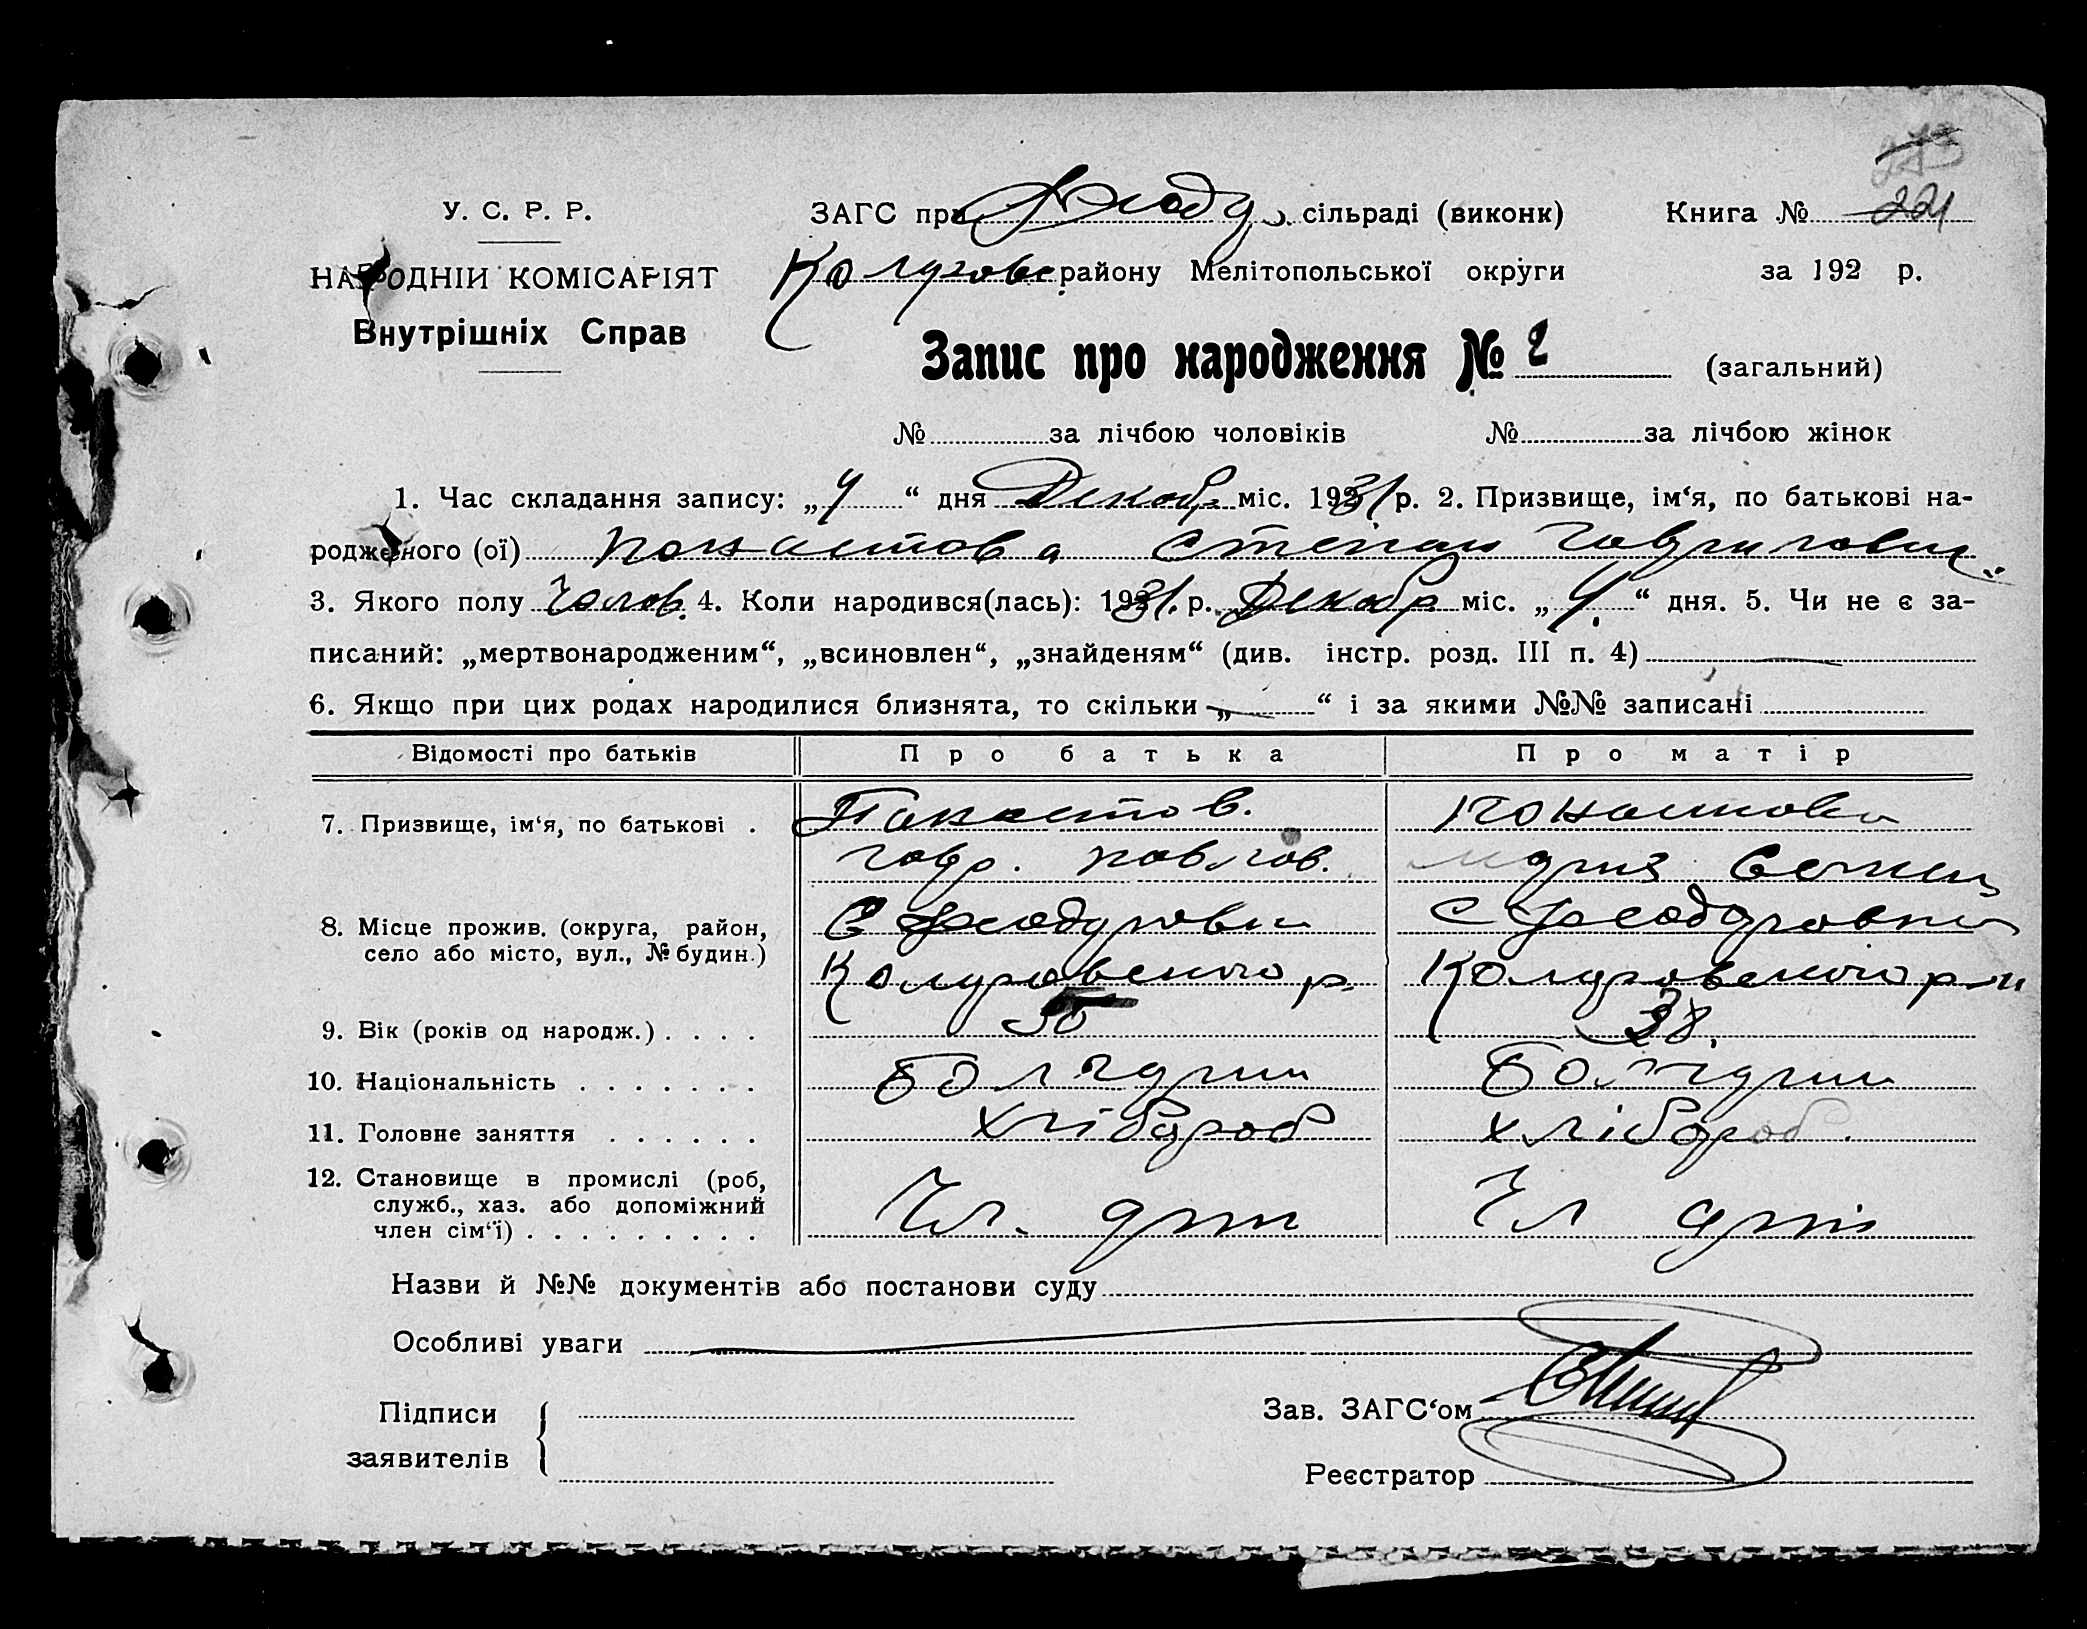 273
У. С. Р. Р. ЗАГС при Феоду сільраді (виконк) Книга № 221
НАРОДНІЙ КОМІСАРІЯТ Коларовс району Мелітопольської округи за 192 р.
Внутрішніх Справ
Запис про народження № 2 (загальний)
№ за лічбою чоловіків № за лічбою жінок
1. Час складання запису: „4“ дня Декабр міс. 1931 р. 2. Призвище, ім‘я, по батькові на-
родженого (ої) Понаитова Степан Гаврилович
3. Якого полу Чолов. 4. Коли народився(лась): 1931. р. Декабр міс. „4“ дня. 5. Чи не є за-
писаний: „мертвонародженим“, „всиновлен“, „знайденям“ (див. інстр. розд. III п. 4)
6. Якщо при цих родах народилися близнята, то скільки „ “ і за якими №№ записані
Відомості про батьків Про батька Про матір
7. Призвище, ім‘я, по батькові . Понаитов. Понаитова
Гавр. Павлов. Мария Семен
8. Місце прожив. (округа, район, С Феодуровка с Феодоровка
село або місто, вул., № будин.) Коларовского р. Коларовского р-н
9. Вік (років од народж.) . . . . 38.
10. Національність . . . . . . . Болгарин Болгарин
11. Головне заняття . . . . . . хлібороб хлібороб.
12. Становище в промислі (роб,
служб., хаз. або допоміжний Чл. арт Чл арт
член сім‘ї) . . . . . . . . .
Назви й №№ документів або постанови суду
Особливі уваги
Підписи Зав. ЗАГС‘ом
заявителів
Реєстратор